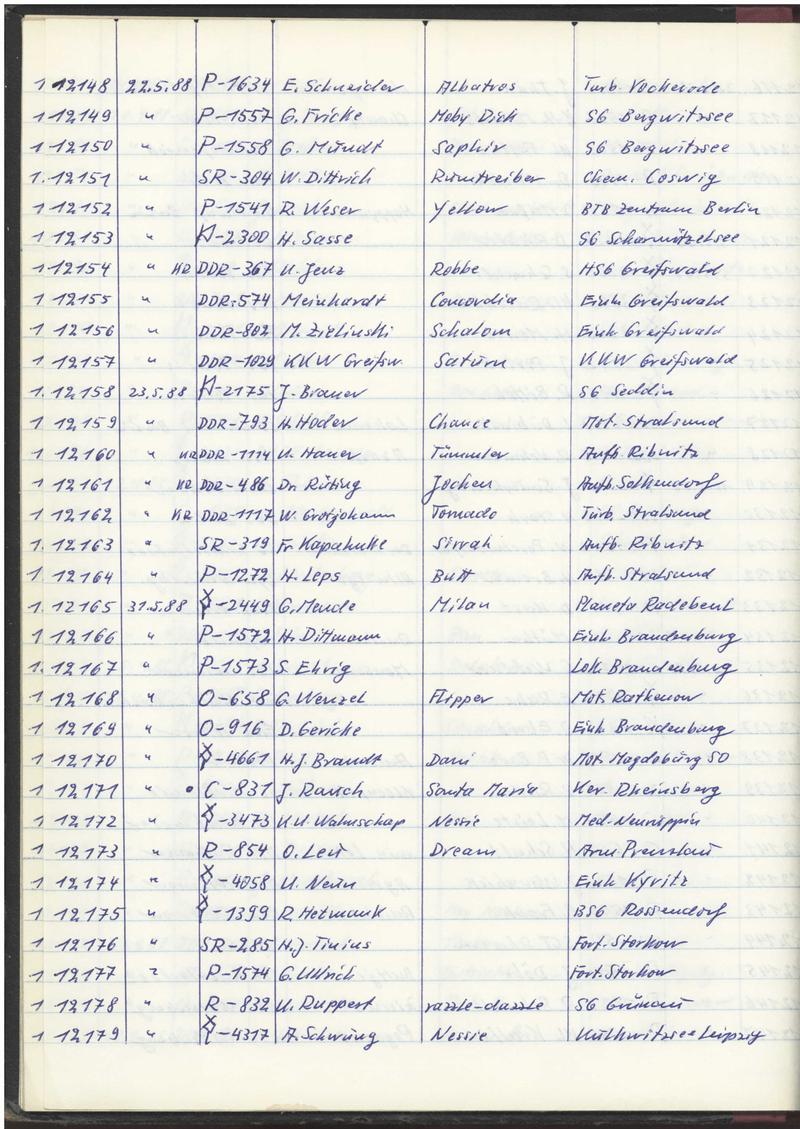 1 12148 22.5.88 P-1634 E. Schneider Albatros Turb. Vockerode
1 12149 " P-1557 G. Fricke Moby Dick SG Bergwitzsee
1 12150 " P-1558 G. Mundt Saphir SG Bergwitzsee
1. 12151 " SR-304 W. Dittrich Rumtreiber Chem. Coswig
1 12152 " P-1541 R. Weser Yellow BTB Zentrum Berlin
1 12153 " H-2300 H. Sasse SG Scharmützelsee
1 12154 " KR DDR-367 U. Jenz Robbe HSG Greifswald
1 12155 " DDR-574 Meinhardt Concordia Einh. Greifswald
1 12156 " DDR-802 M. Zielinski Schalom Einh. Greifswald
1 12157 " DDR-1029 KKW Greifsw. Saturn KKW Greifswald
1. 12158 23.5.88 H-2175 J. Brauer SG Seddin
1 12159 " DDR-793 H. Hoder Chance Mot. Stralsund
1 12160 " KR DDR-1114 U. Hauer Tümmler Aufb. Ribnitz
1 12161 " KR DDR-486 Dr. Rüting Jochen Aufb. Selkendorf
1 12162 " KR DDR-1117 W. Grotjohann Tornado Turb. Stralsund
1. 12163 " SR-319 Fr. Sirrah Aufb. Ribnitz
1 12164 " P-1272 H. Leps Butt Aufb. Stralsund
1. 12165 31.5.88 -2449 G. Mende Milan Planeta Radebeul
1 12166 " P-1572 H. Dittmann Einh. Brandenburg
1. 12167 " P-1573 S. Ehrig Lok. Brandenburg
1 12168 " O-658 G. Wenzel Flipper Mot. Rathenow
1 12169 " O-916 D. Gericke Einh. Brandenburg
1 12170 " -4661 H.J. Brandt Dani Mot. Magdeburg SO
1 12171 " • C-831 J. Rausch Santa Maria Ker. Rheinsberg
1 12172 " -3473 K.U. Wahnschap Nessie Med. Neuruppin
1 12173 " R-854 O. Leu Dream Arm. Prenzlau
1 12174 " -4058 U. Neun Einh. Kyritz
1 12175 " -1399 R. Hetmank BSG Rossendorf
1 12176 " SR-285 H.J. Tinius Fort. Storkow
1 12177 " P-1574 G. Ullrich Fort. Storkow
1 12178 " R-832 U. Ruppert razzle-dazzle SG Grünau
1 12179 " -4317 A. Schwung Nessie Kulkwitzsee Leipzig